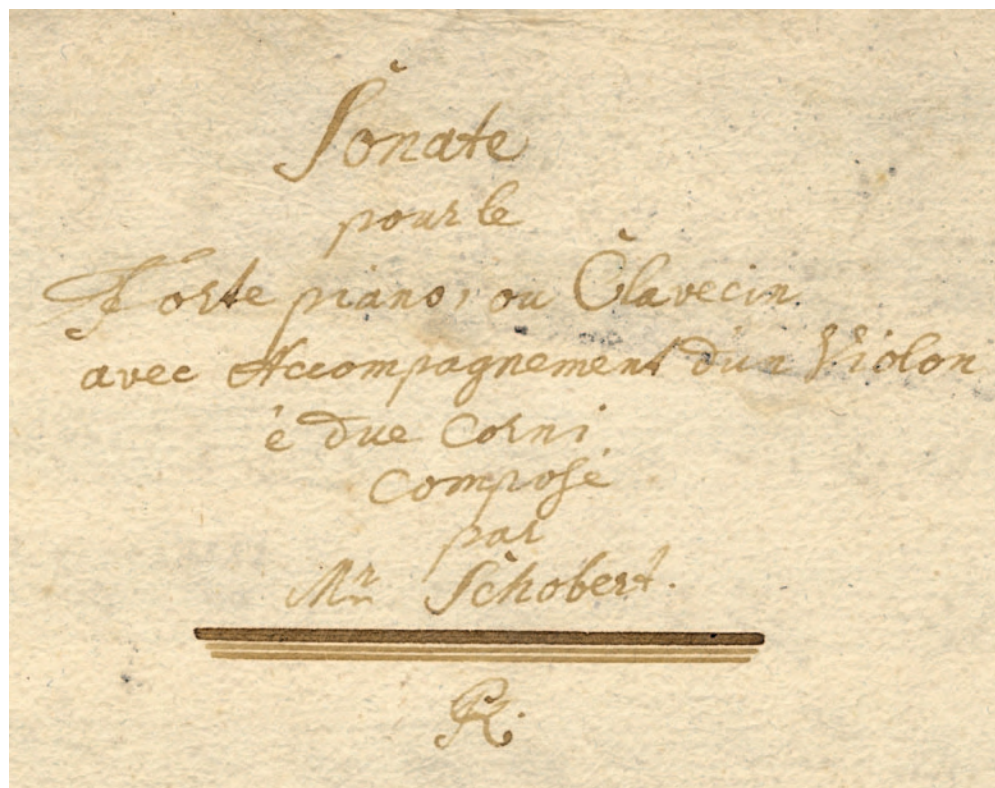 Sonate
pour le
Forte piano, ou Clavecin
avec Accompagnement d'un Violon
è due Corni
Composé
par
Mr Schobert.
R.